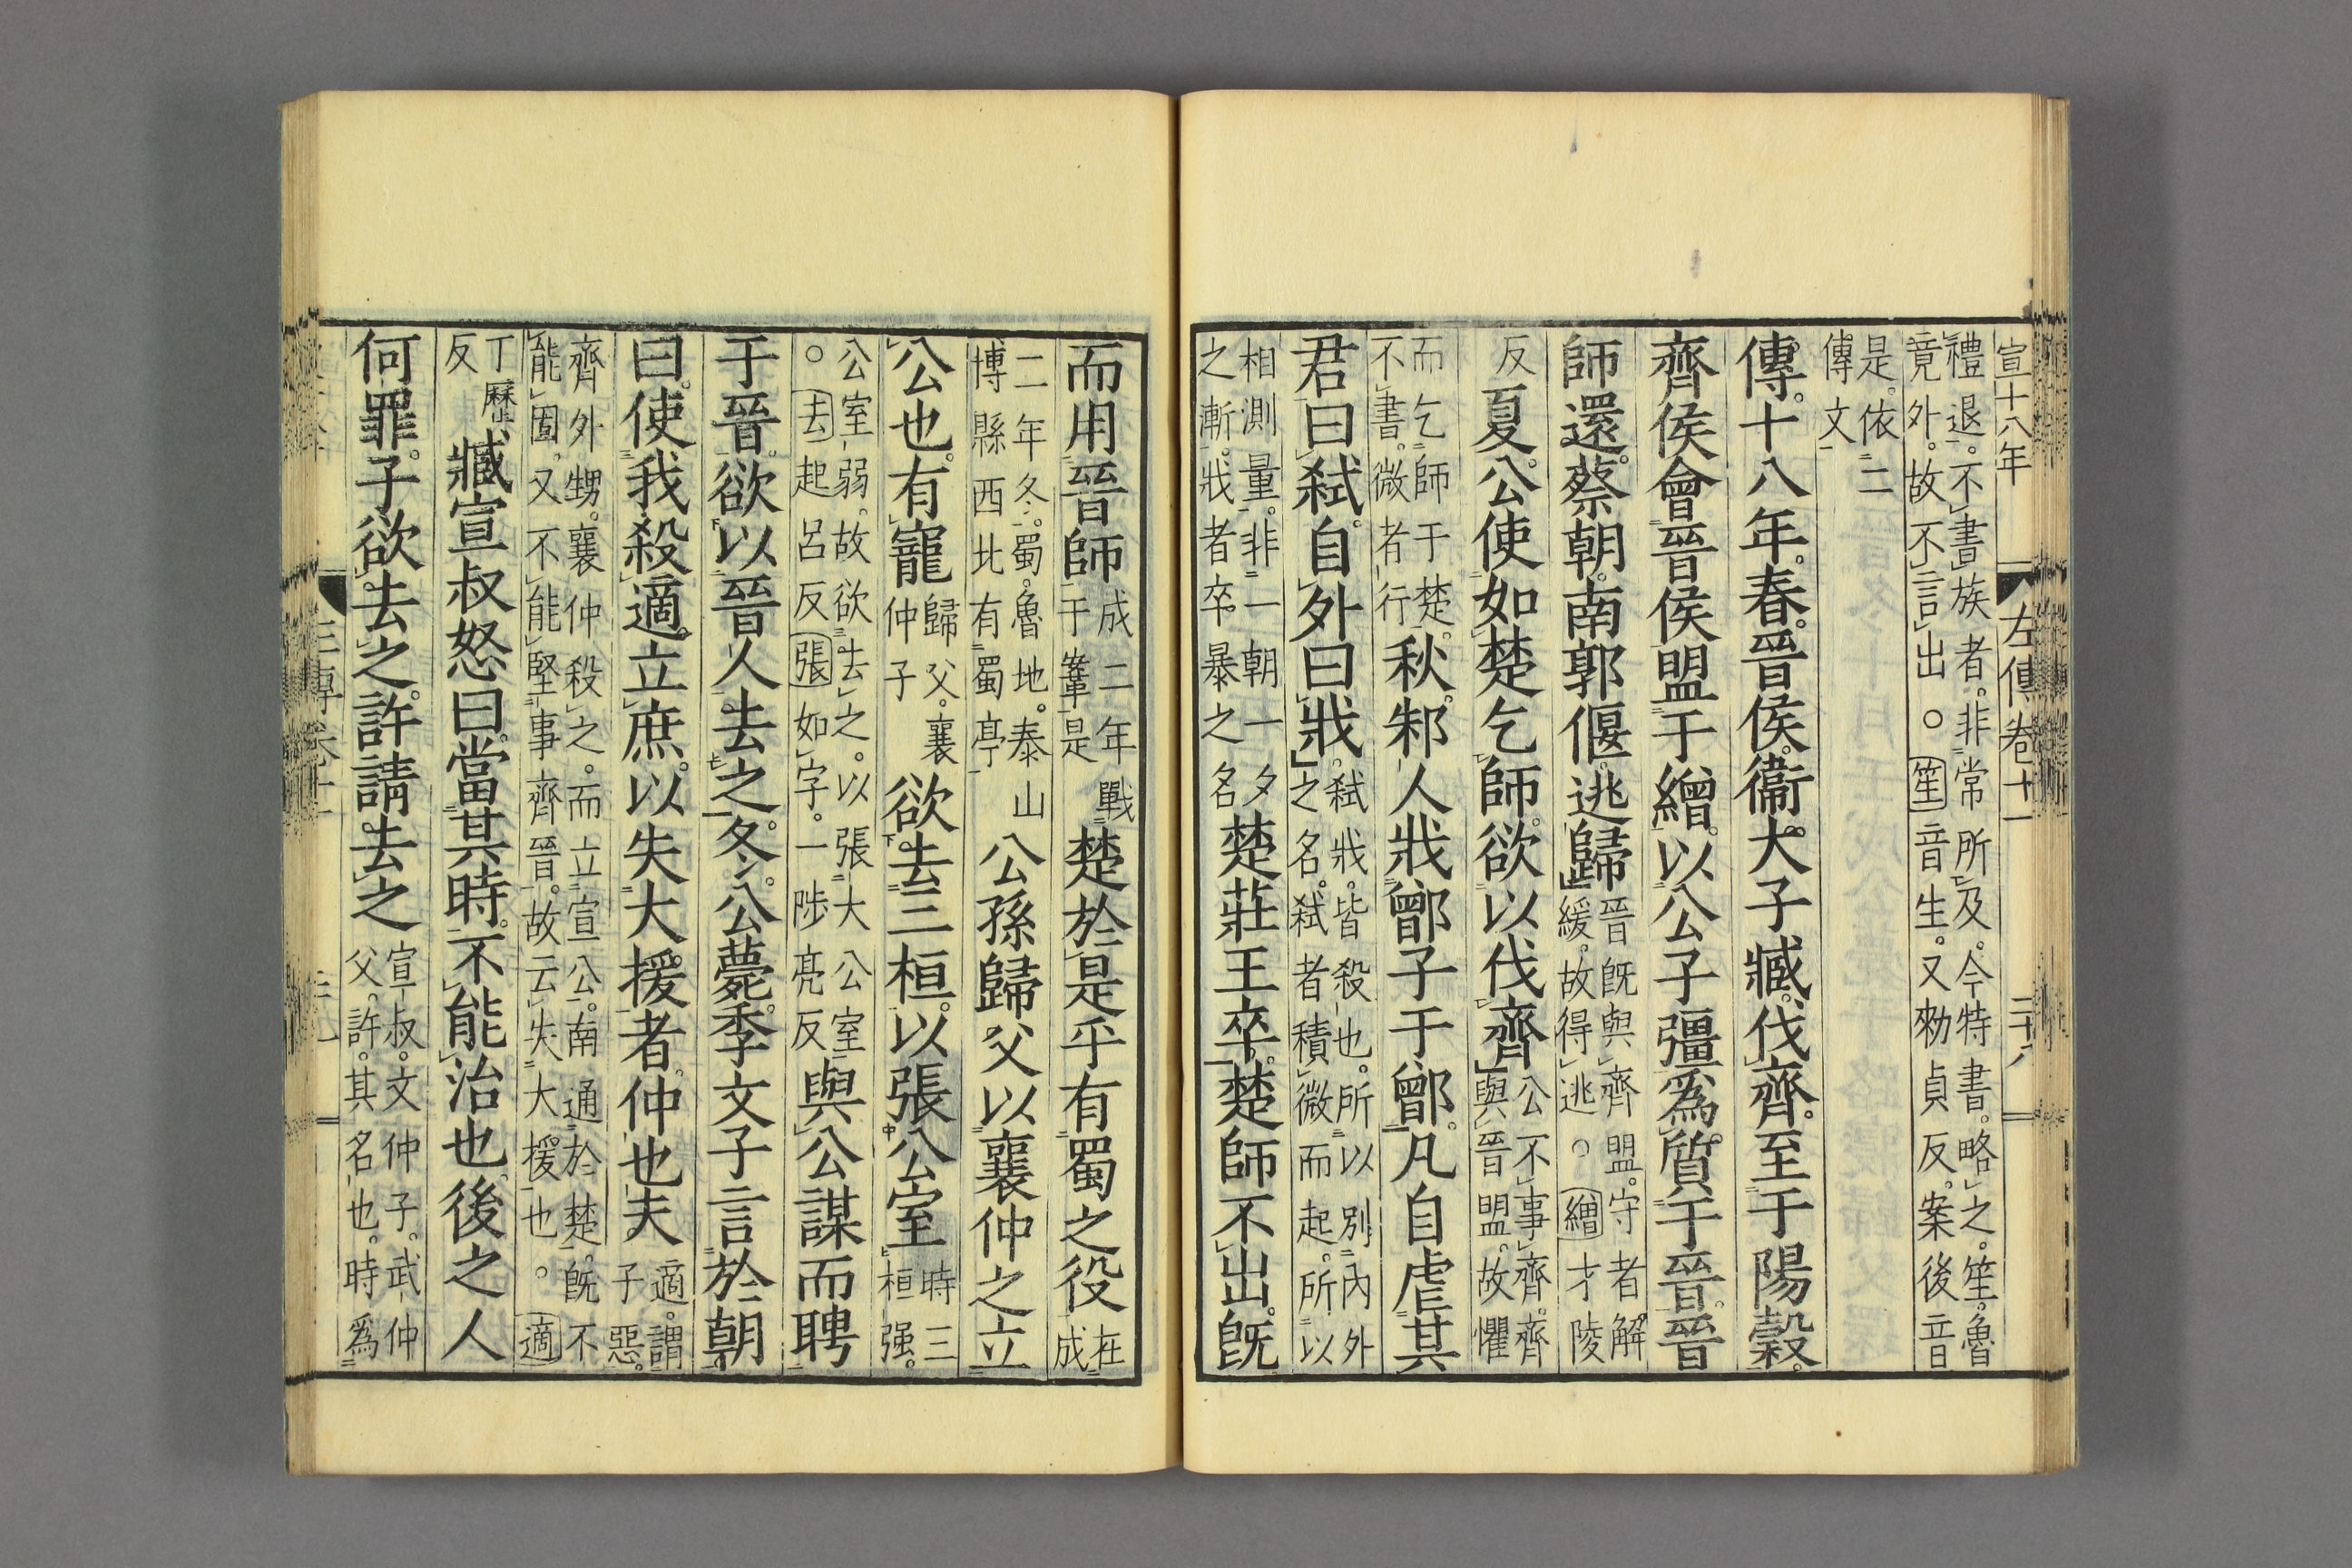 宣十八年 左傳卷十一 二十八
禮退不書族者非常所及今特書略之笙魯
竟外故不言出〇笙音生又勑貞反案後音
是依二
傳文
傳十八年春晉侯衞大子臧伐齊至于陽穀
齊侯會晉侯盟于繒以公子彊爲質于晉晉
師還蔡朝南郭偃逃歸晉旣與齊盟守者解
緩故得逃〇繒才陵
反夏公使如楚乞師欲以伐齊公不事齊齊
與晉盟故懼
而乞師于楚
不書微者行秋邾人戕鄫子于鄫凡自虐其
君曰弑自外曰戕弑戕皆殺也所以別內外
之名弑者積微而起所以
相測量非一朝一夕
之漸戕者卒暴之名楚莊王卒楚師不出旣
而用晉師成二年戰
于鞌是楚於是乎有蜀之役在
成
二年冬蜀魯地泰山
博縣西北有蜀亭公孫歸父以襄仲之立
公也有寵歸父襄
仲子欲去三桓以張公室時三
桓强
公室弱故欲去之以張大公室
〇去起呂反張如字一陟亮反與公謀而聘
于晉欲以晉人去之冬公薨季文子言於朝
曰使我殺適立庶以失大援者仲也夫適謂
子惡
齊外甥襄仲殺之而立宣公南通於楚旣不
能固又不能堅事齊晉故云失大援也〇適
丁歷
反臧宣叔怒曰當其時不能治也後之人
何罪子欲去之許請去之宣叔文仲子武仲
父許其名也時爲